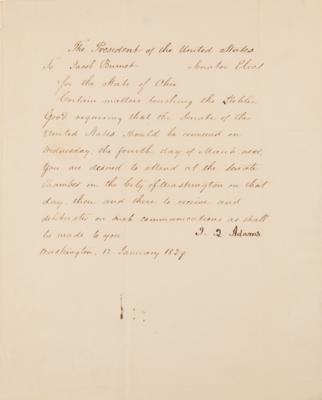 The President of the United States
To Jacob Burnet Senator Elect
for the State of Ohio
Certain matters touching the Public
Good requiring that the Senate of the
United States should be convened on
Wednesday, the fourth day of March next,
You are desired to attend at the Senate
Chamber in the City of Washington on that
day, then and there to receive and
deliberate on such communications as shall
be made to you. J. Q. Adams
Washington, 12 January 1829